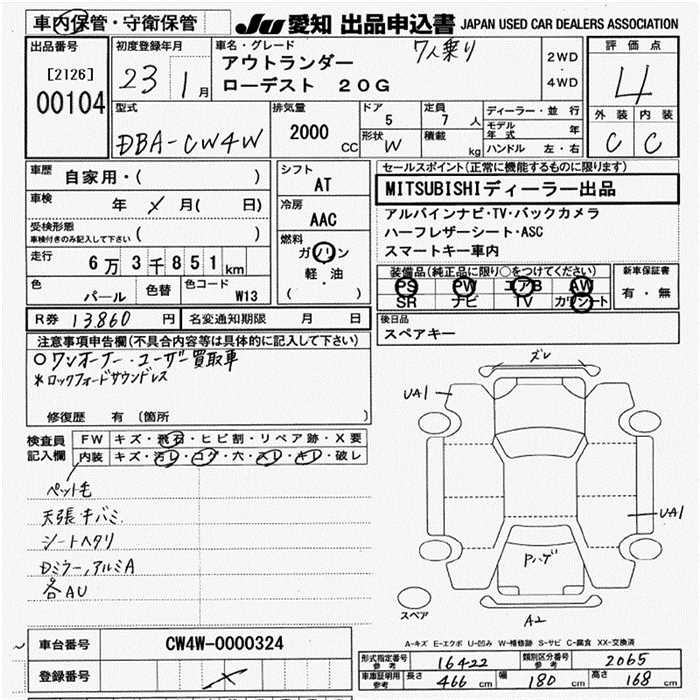 車内保管・守衛保管
JU 愛知 出品申込書 JAPAN USED CAR DEALERS ASSOCIATION
出品番号
[2126]
00104
初度登録年月
23 1月
車名・グレード
アウトランダー
ローデスト 20G
7人乗り
2WD
・
4WD
評価点
4
外装 内装
C C
型式
DBA-CW4W
排気量
2000 CC
ドア
5
形状 W
定員
7 人
積載 kg
ディーラー・並行
モデル年式 年
ハンドル 左・右
車歴
自家用・( )
車検 年 メ 月( 日)
受検形態
車検付きのみ記入して下さい ( )
走行 6万3千851km
色 パール
色替
色コード W13
シフト
AT
冷房
AAC
燃料
ガソリン
軽・油
( )
セールスポイント(正常に機能するものに限ります)
MITSUBISHIディーラー出品
アルパインナビ・TV・バックカメラ
ハーフレザーシート・ASC
スマートキー車内
装備品(純正品に限り○をつけてください)
PS PW エアB AW
SR ナビ TV カワシート
新車保証書
有・無
R券 13,860 円 名変通知期限 月 日
後日品
スペアキー
注意事項申告欄(不具合内容等は具体的に記入して下さい)
○ワンオーナー・ユーザー買取車
*ロックフォードサウンドレス
修復歴 有 〔箇所 〕
検査員
記入欄
FW キズ・飛石・ヒビ割・リペア跡・X要
内装 キズ・汚レ・コゲ・穴・スレ・キレ・破レ
ペット毛
天張・キバミ
シートヘタリ
Dミラー,アルミA
各AU
ズレ
UA1
UA1
Pハゲ
スペア
A2
A-キズ E-エクボ U-凹み W-補修跡 S-サビ C-腐食 XX-交換済
車台番号 CW4W-0000324
登録番号
形式指定番号参考 16422
類別区分番号参考 2065
車庫証明用参考 長さ 466 cm 幅 180 cm 高さ 168 cm